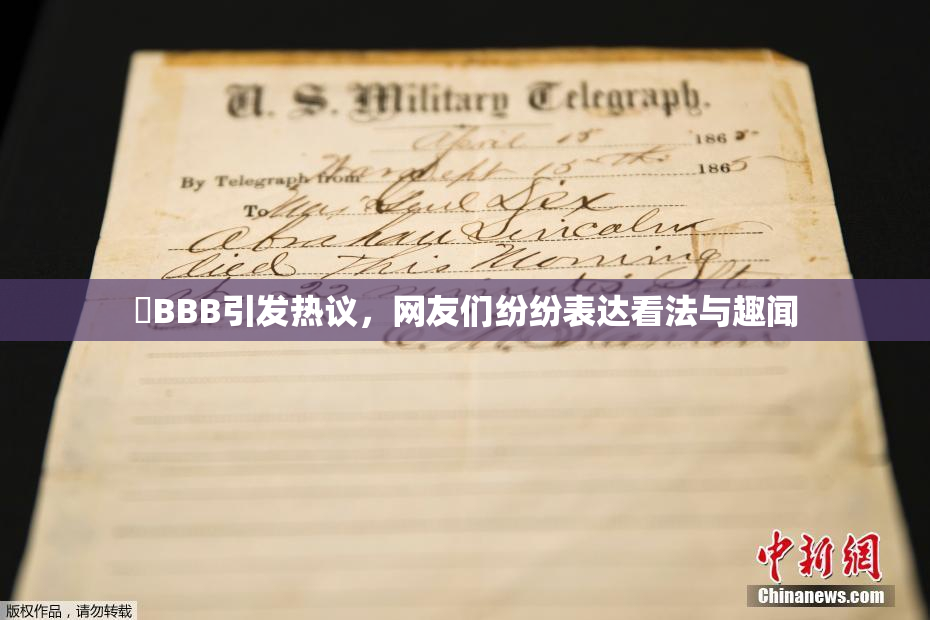 U. S. Military Telegraph.
April 15 1865
By Telegraph from War Dept 15th 1865
To Maj Genl Dix
Abraham Lincoln
died This Morning
at 22 minutes after
BBB引发热议，网友们纷纷表达看法与趣闻
E. M. Stanton
中新网
Chinanews.com
版权作品，请勿转载